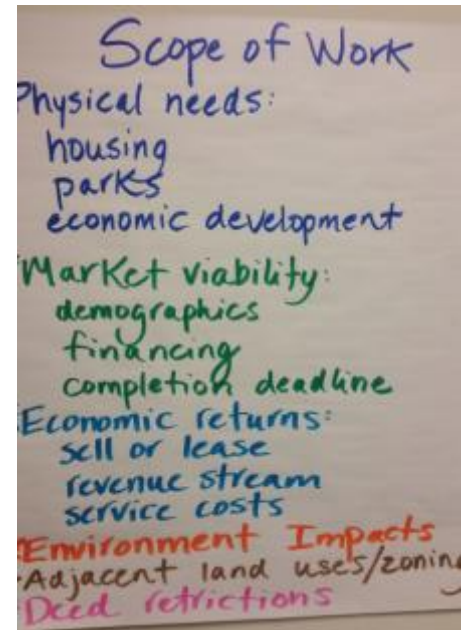 Scope of Work
Physical needs:
housing
parks
economic development
Market viability:
demographics
financing
completion deadline
Economic returns:
sell or lease
revenue stream
service costs
Environment Impacts
Adjacent land uses/zoning
Deed retrictions